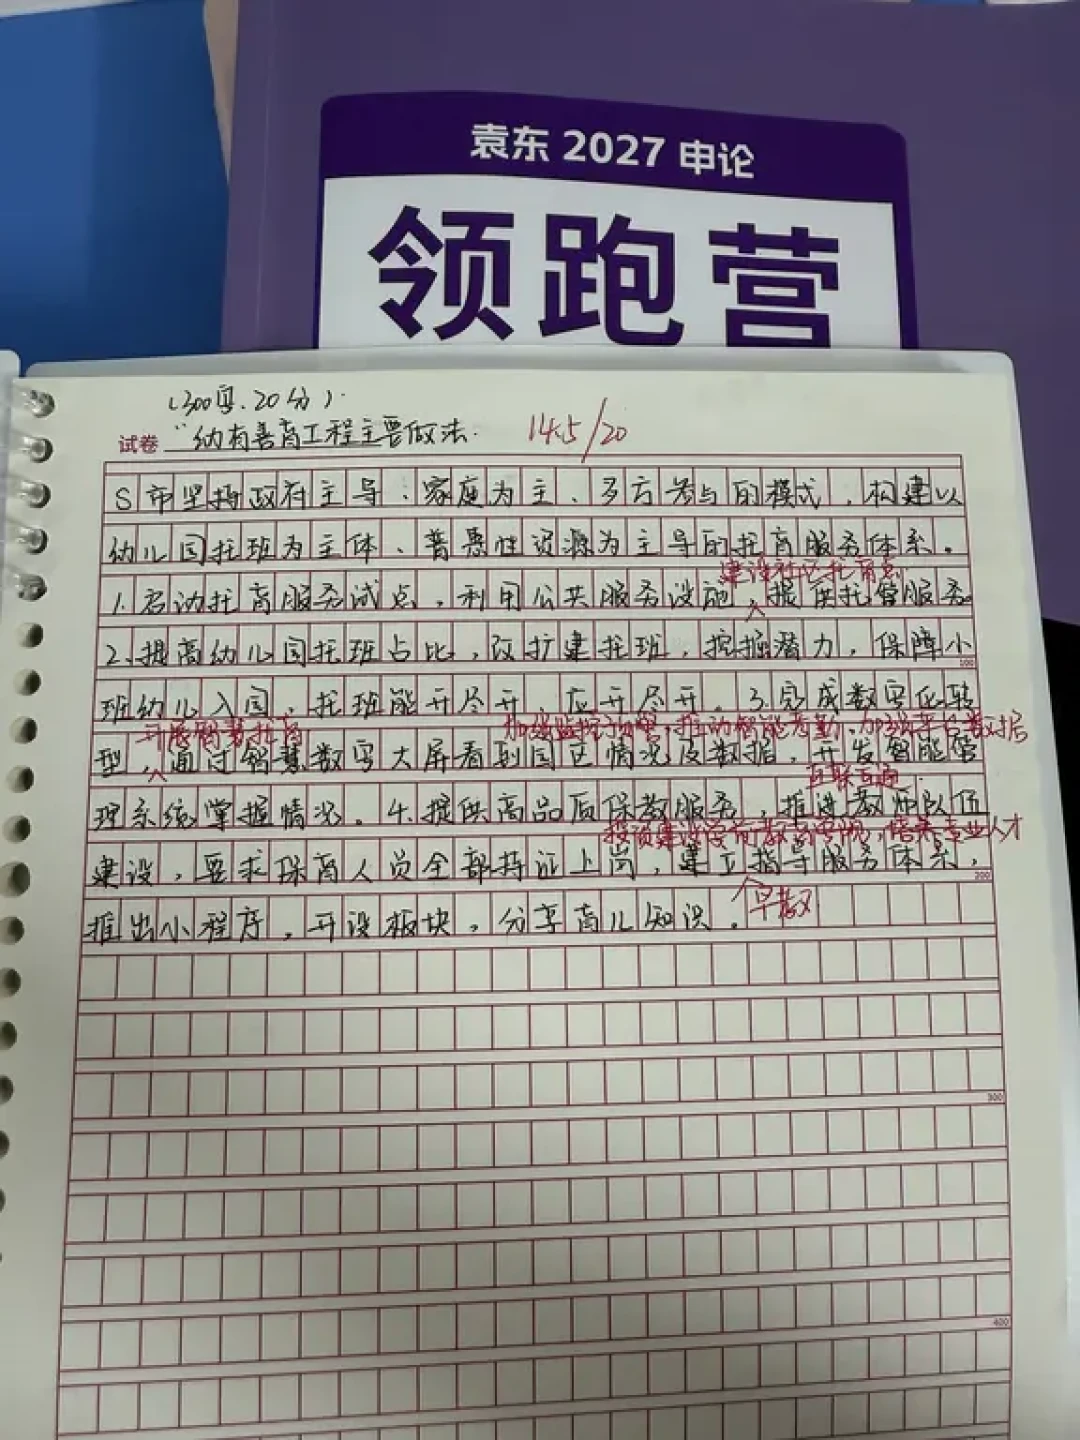 袁东 2027 申论
领跑营
(300字.20分).
试卷 "幼有善育工程主要做法. 14.5/20
S市坚持政府主导、家庭为主、多方参与的模式,构建以
幼儿园托班为主体、普惠性资源为主导的托育服务体系。
建设社区托育点
1.启动托育服务试点,利用公共服务设施,提供托管服务
2.提高幼儿园托班占比,改扩建托班,挖掘潜力,保障小
100
班幼儿入园,托班能开尽开,应开尽开。3.完成数字化转
开展智慧托育 加强监控预警,推动智能考勤、加强平台数据
型,通过智慧数字大屏看到园区情况及数据,开发智能管
互联互通.
理系统掌握情况。4.提供高品质保教服务,推进教师队伍
投资建设学前教育学院,培养专业人才
建设,要求保育人员全部持证上岗,建立指导服务体系,
200
早教
推出小程序,开设板块,分享育儿知识。
300
400